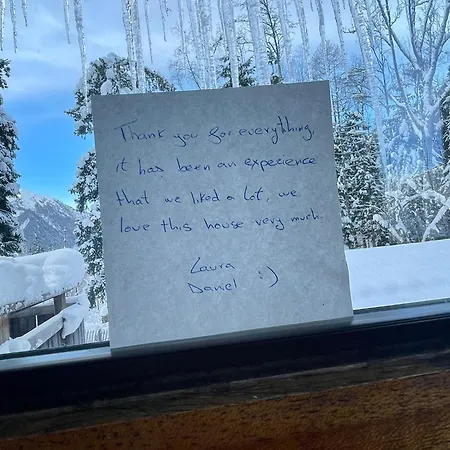 Thank you for everything,
it has been an experience
that we liked a lot, we
love this house very much.
Laura
Daniel :)